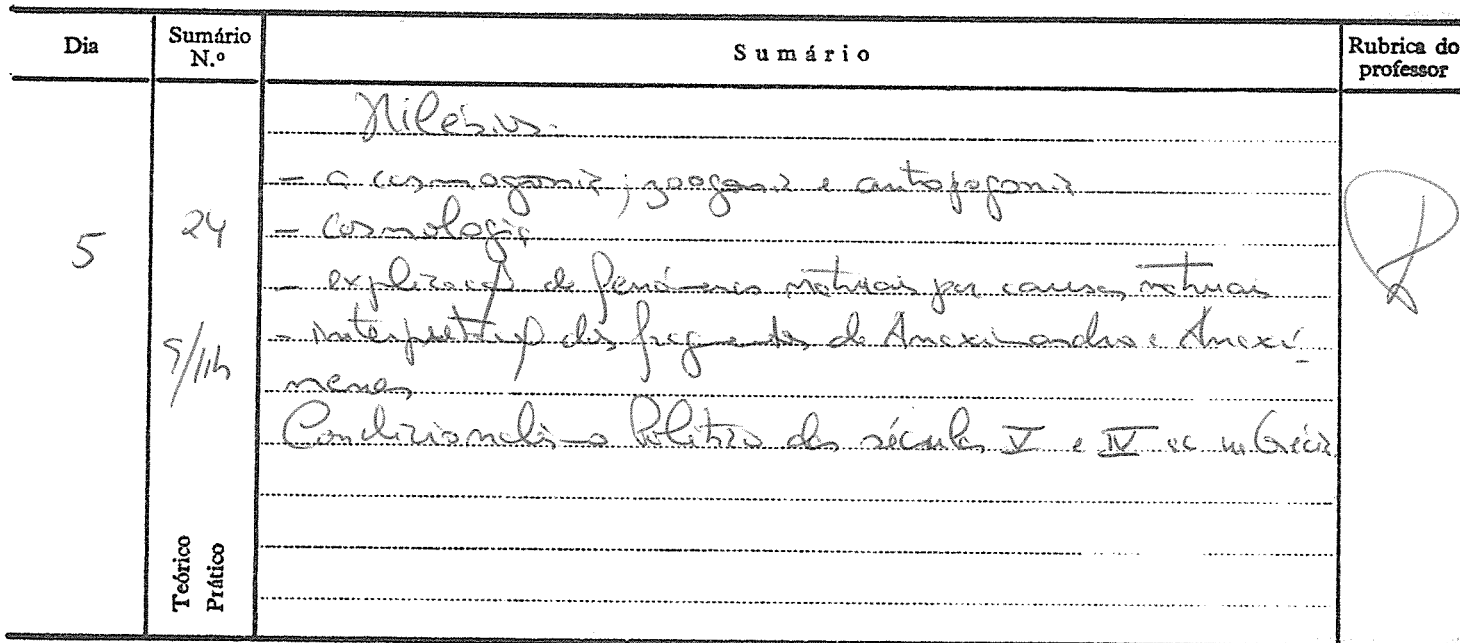 Dia
Sumário N.º
Sumário
Rubrica do professor
5
24
9/11h
Teórico
Prático
Milésios.
- a cosmogonia; zoogonia e antropogonia
- cosmologia
- explicação de fenómenos naturais por causas naturais
- interpretação dos fragmentos de Anaximandro e Anaxí-
menes
Condicionalismo Político dos séculos V e IV ac na Grécia